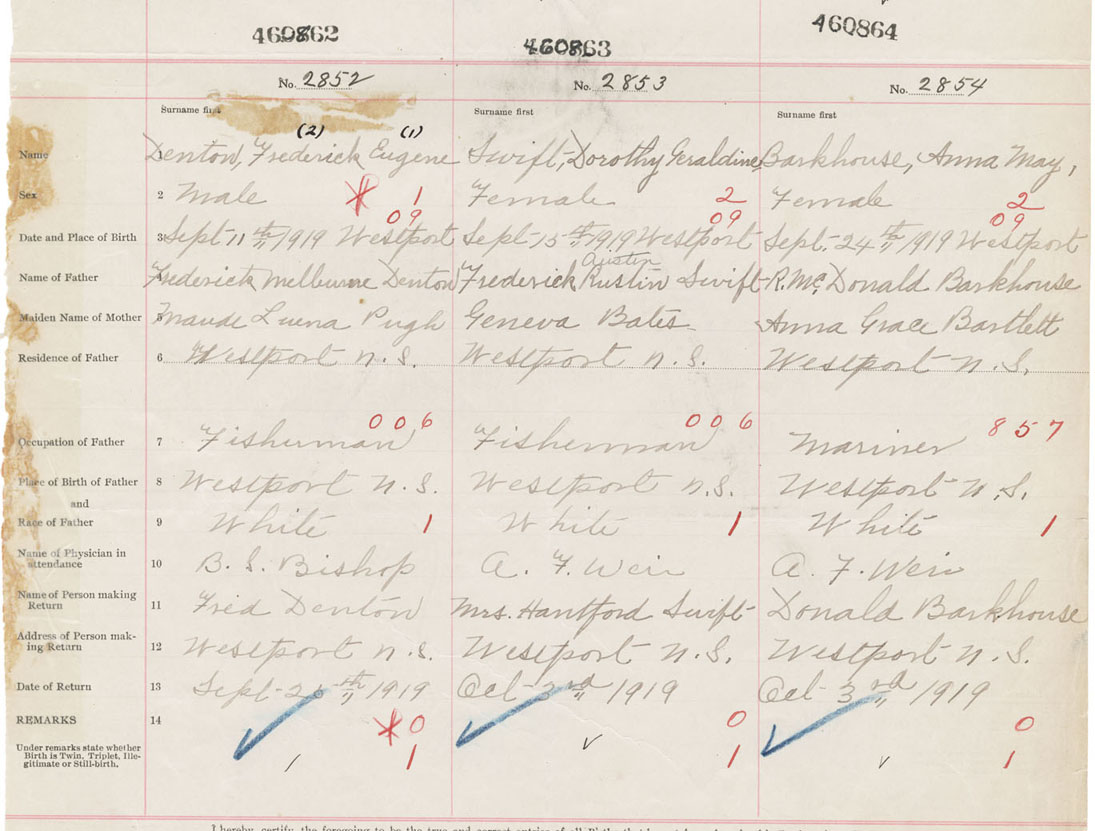 460862 460863 460864
No. 2852 No. 2853 No. 2854
Surname first Surname first Surname first
(2) (1)
Name 1 Denton, Frederick Eugene Swift, Dorothy Geraldine, Barkhouse, Anna May,
Sex 2 Male * 1 Female 2 Female 2
09 09 09
Date and Place of Birth 3 Sept 11th 1919 Westport Sept 15th 1919 Westport Sept. 24th 1919 Westport
Austin
Name of Father 4 Frederick Melburne Denton Frederick Rustin Swift R. Mc. Donald Barkhouse
Maiden Name of Mother 5 Maude Luena Pugh Geneva Bates Anna Grace Bartlett
Residence of Father 6 Westport N.S. Westport N.S. Westport N.S.
006 006 857
Occupation of Father 7 Fisherman Fisherman Mariner
Place of Birth of Father 8 Westport N.S. Westport N.S. Westport N.S.
and
Race of Father 9 White 1 White 1 White 1
Name of Physician in
attendance 10 B. S. Bishop A. F. Weir A. F. Weir
Name of Person making
Return 11 Fred Denton Mrs. Hantford Swift Donald Barkhouse
Address of Person mak-
ing Return 12 Westport N.S. Westport N.S. Westport N.S.
Date of Return 13 Sept 1919 Oct 3rd 1919 Oct 3rd 1919
REMARKS 14 * 0 0 0
Under remarks state whether
Birth is Twin, Triplet, Ille-
gitimate or Still-birth. 1 1 1
I hereby certify the foregoing to be the true and correct entries of all Births